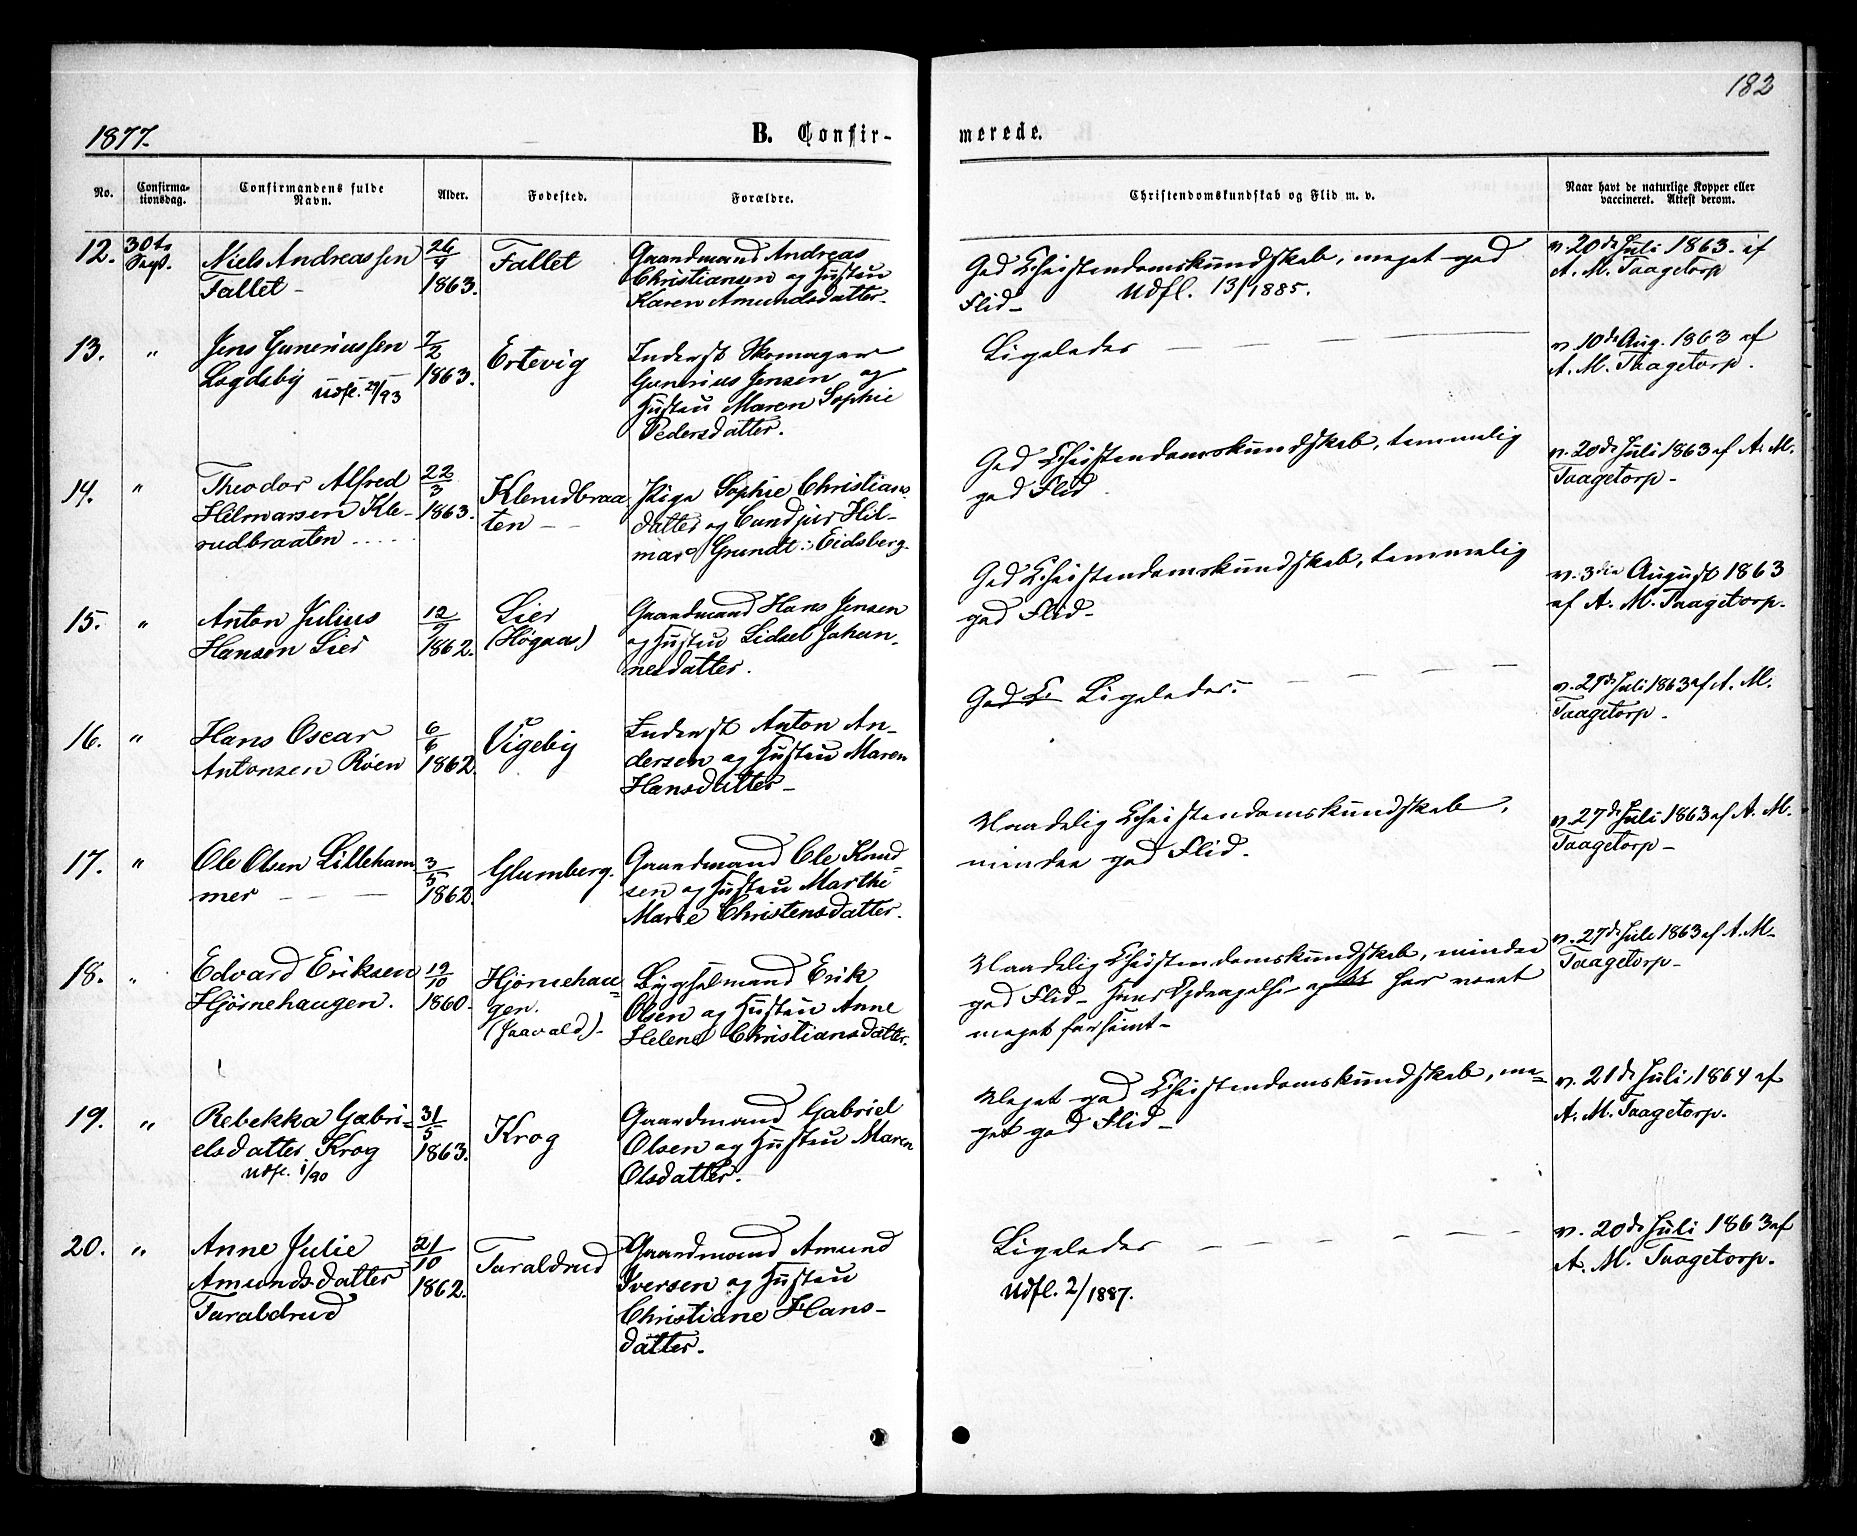 182
1877.
B. Confirmerede.
No.
Confirmationsdag.
Confirmandens fulde Navn.
Alder.
Fodested.
Forældre.
Christendomskundskab og Flid m. v.
Naar havt de naturlige Kopper eller vaccineret. Attest derom.
12.
30te Sept.
Niels Andreassen
Fallet
1863.
Fallet
Gaardmand Andreas
Christiansen og Hustru
Karen Amundsdatter.
God Christendomskundskab, meget god
Flid
Udfl. 13/1885.
v. 20de Juli 1863. af
A. M. Taagetorp
13.
"
Jens Guneriussen
Logdsby Udfl. 29/93
7/2
1863.
Ertevig
Inderst Skomager
Gunerius Jensen og
Hustru Maren Sophie
Pedersdatter.
Ligeledes
v. 10de Aug. 1863 af
A. M. Taagetorp.
14.
"
Theodor Alfred
Hilmarsen Kle-
rudbraaten
22/3
1863.
Klerudbraa
ten
Pige Sophie Christians-
datter og Cand jur Hil-
mar Grundt: Eidsberg.
God Christendomskundskab, temmelig
god Flid
v. 20de Juli 1863 af A. M.
Taagetorp
15.
"
Anton Julius
Hansen Lier
12/9
1862.
Lier
(Høgaas)
Gaardmand Hans Jensen
og Hustru Lidsel Johan-
nesdatter.
God Christendomskundskab, temmelig
god Flid
v. 3die August 1863
af A. M. Taagetorp.
16.
"
Hans Oscar
Antonsen Röen
6/6
1862.
Vigeby
Inderst Anton An-
dersen og Hustru Maren
Hansdatter
God C Ligeledes.
v. 21de Juli 1863 af A. M.
Taagetorp.
17.
"
Ole Olsen Lilleham
mer
3/5
1862.
Glumberg.
Gaardmand Ole Knud-
sen og Hustru Marthe
Marie Christensdatter.
Maadelig Christendomskundskab,
mindre god Flid.
v. 27de Juli 1863 af A. M.
Taagetorp
18.
"
Edvard Eriksen
Hjørnehaugen.
19/10
1860.
Hjørnehau-
gen.
Bygselmand Erik
Olsen og Hustru Anne
Helene Christiansdatter.
Maadelig Christendomskundskab, mindre
god Flid Hans Opdragelse har været
meget forsømt
v. 27de Juli 1863 af A. M.
Taagetorp
19.
"
Rebekka Gabri-
elsdatter Krog
Udfl. 1/90
31/5
1863.
Krog
Gaardmand Gabriel
Olsen og Hustru Maren
Olsdatter.
Meget god Christendomskundskab, me-
get god Flid
v. 21de Juli, 1864 af
A. M. Taagetorp.
20.
"
Anne Julie
Amundsdatter
Taraldrud
21/10
1862.
Taraldrud
Gaardmand Amund
Iversen og Hustru
Christiane Hans-
datter.
Ligeledes
Udfl. 2/1887.
v. 20de Juli 1863 af
A. M. Taagetorp.